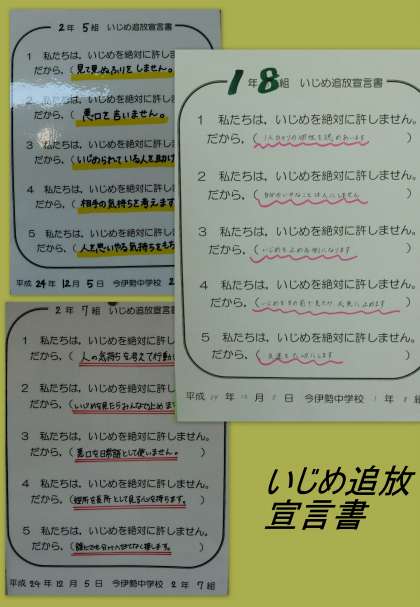 2年 5組 いじめ追放宣言書
1 私たちは、いじめを絶対に許しませ
だから、( 見て見ぬふりをしません。
2 私たちは、いじめを絶対に許しま
だから、( 悪口を言いません。
3 私たちは、いじめを絶対に許しま
だから、(いじめられている人を助け
4 私たちは、いじめを絶対に許しま
だから、( 相手の気持ちを考えます
5 私たちは、いじめを絶対に許しま
だから、( 人を思いやる気持ちをもち
平成 24年 12月 5日 今伊勢中学校 2
1年 8組 いじめ追放宣言書
1 私たちは、いじめを絶対に許しません。
だから、( 1人ひとりの個性を認めあいます )
2 私たちは、いじめを絶対に許しません。
だから、( 自分がいやなことは人にしません )
3 私たちは、いじめを絶対に許しません。
だから、( いじめを止める側になります )
4 私たちは、いじめを絶対に許しません。
だから、(
)
5 私たちは、いじめを絶対に許しません。
だから、( 友達を大切にします )
平成 24年 12月 5日 今伊勢中学校 1年 8組
2年 7組 いじめ追放宣言
1 私たちは、いじめを絶対に許し
だから、( 人の気持ちを考えて行動
2 私たちは、いじめを絶対に許しませ
だから、(いじめを見たらみんなで止めま
3 私たちは、いじめを絶対に許しません。
だから、( 悪口を日常語として使いません。 )
4 私たちは、いじめを絶対に許しません。
だから、(短所を長所として見る心を持ちます。 )
5 私たちは、いじめを絶対に許しません。
だから、( 誰にでも分けへだてなく接します。 )
平成 24年 12月 5日 今伊勢中学校 2年 7組
いじめ追放
宣言書